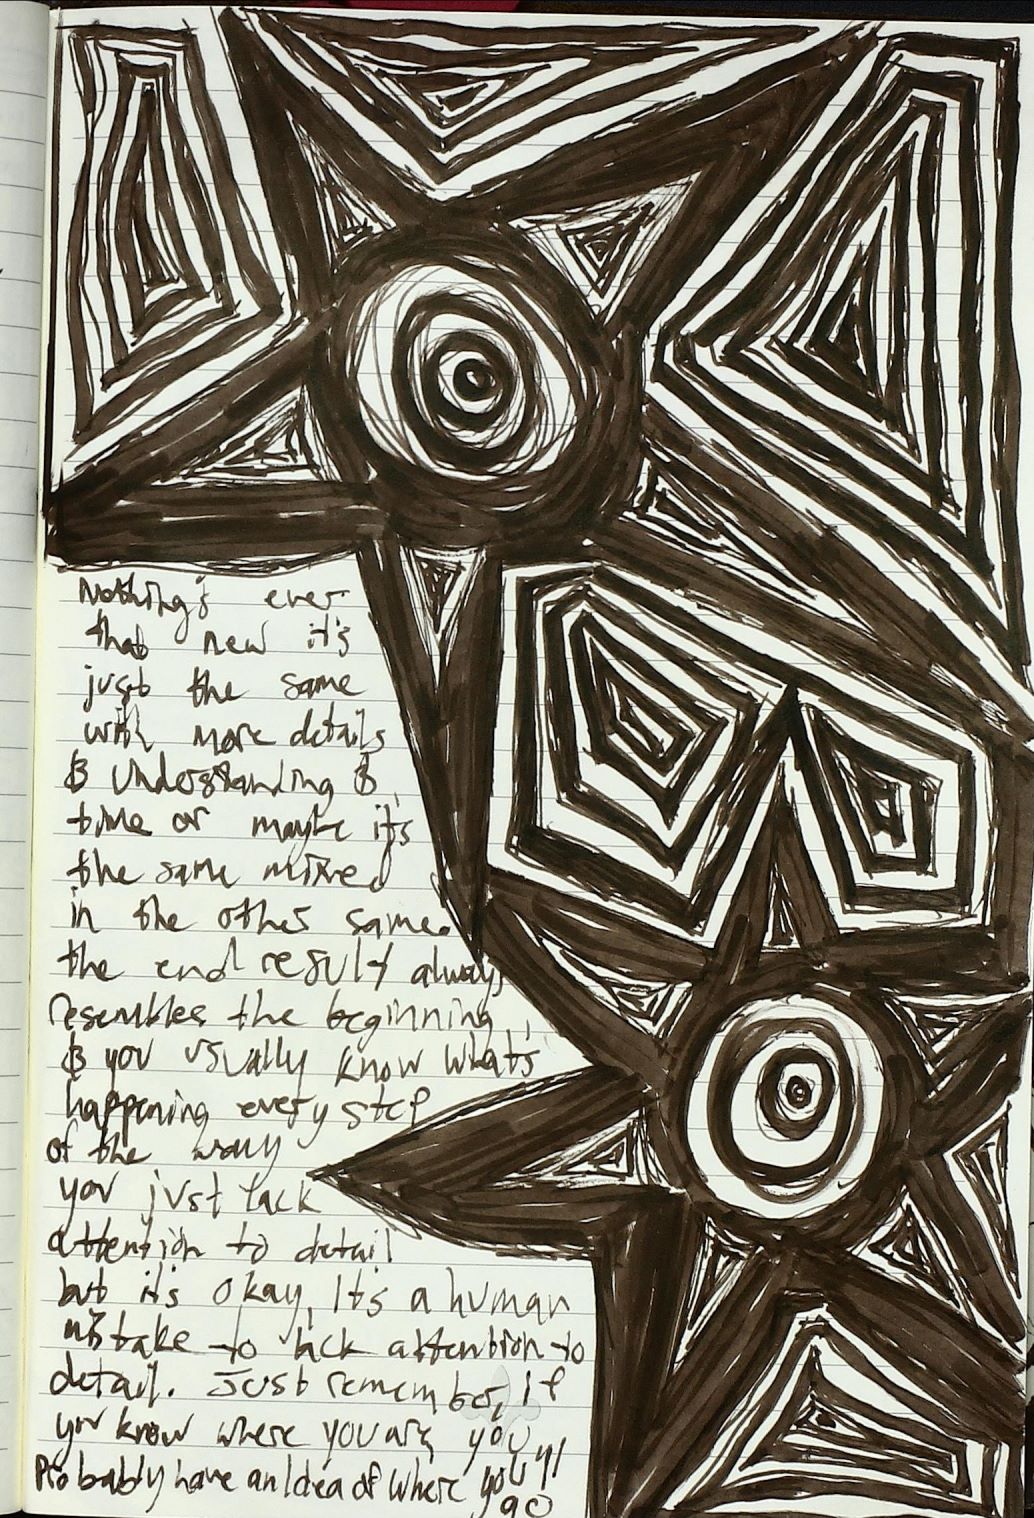 Nothing's ever
that new it's
just the same
with more details
& understanding &
time or maybe it's
the same mixed
in the other same.
the end result always
resembles the beginning,
& you usually know what's
happening every step
of the way
you just lack
attention to detail
but it's okay, It's a human
mistake to lack attention to
detail. Just remember, if
you know where you are, you
Probably have an Idea of where you'll
go